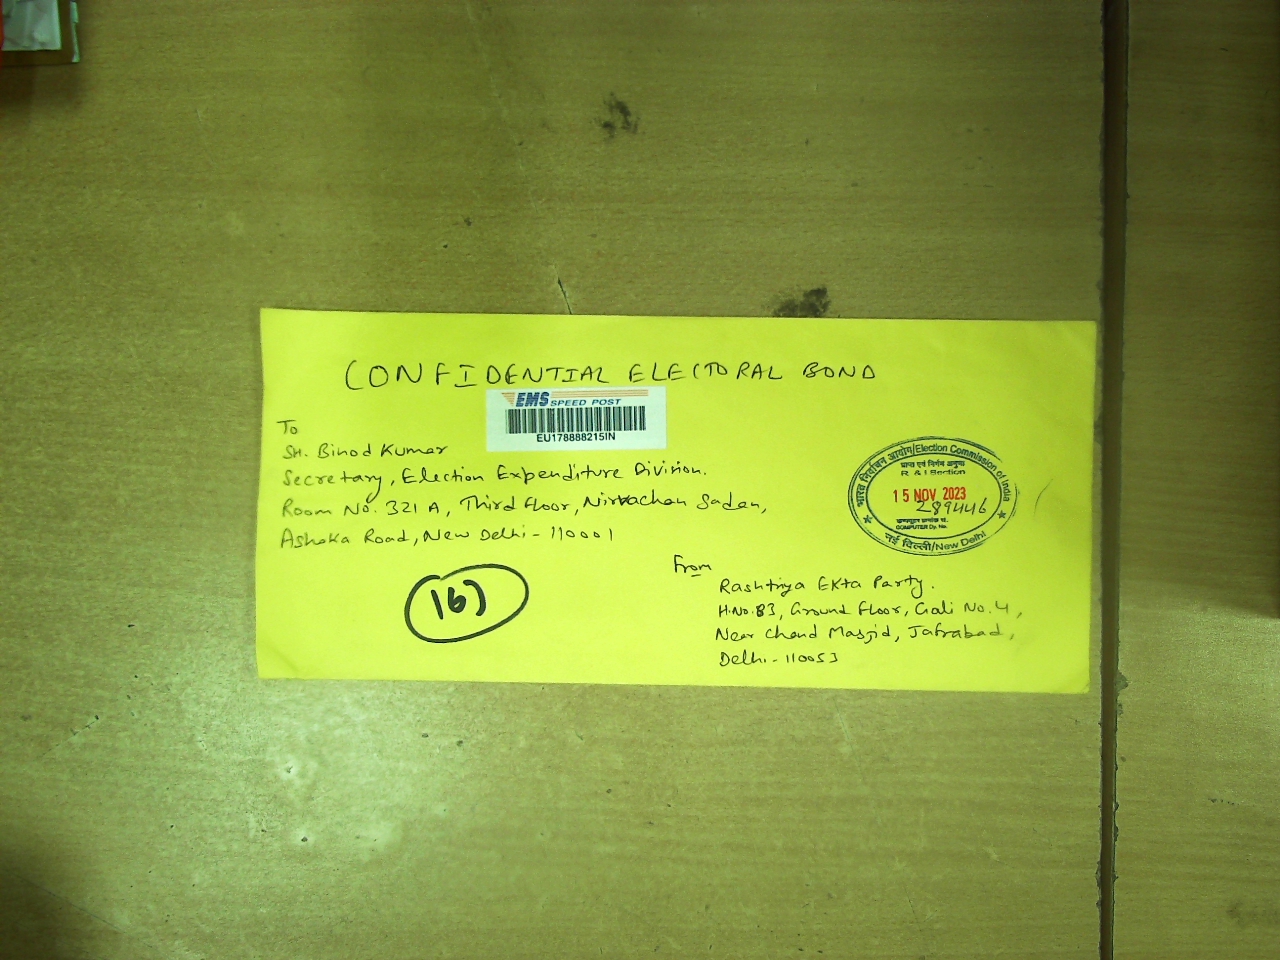 CONFIDENTIAL ELECTORAL BOND
EMS SPEED POST
EU178888215IN
To
Sh. Binod Kumar
Secretary, Election Expenditure Division.
Room No. 321 A, Third Floor, Nirvachan Sadan,
Ashoka Road, New Delhi - 110001
भारत निर्वाचन आयोग/Election Commission of India
प्राप्त एवं निर्गम अनुभाग
R & I Section
15 NOV 2023
289446
COMPUTER Dy. No.
नई दिल्ली/New Delhi
From
Rashtriya Ekta Party.
H.No. 83, Ground Floor, Gali No. 4,
Near Chand Masjid, Jafrabad,
Delhi - 110053